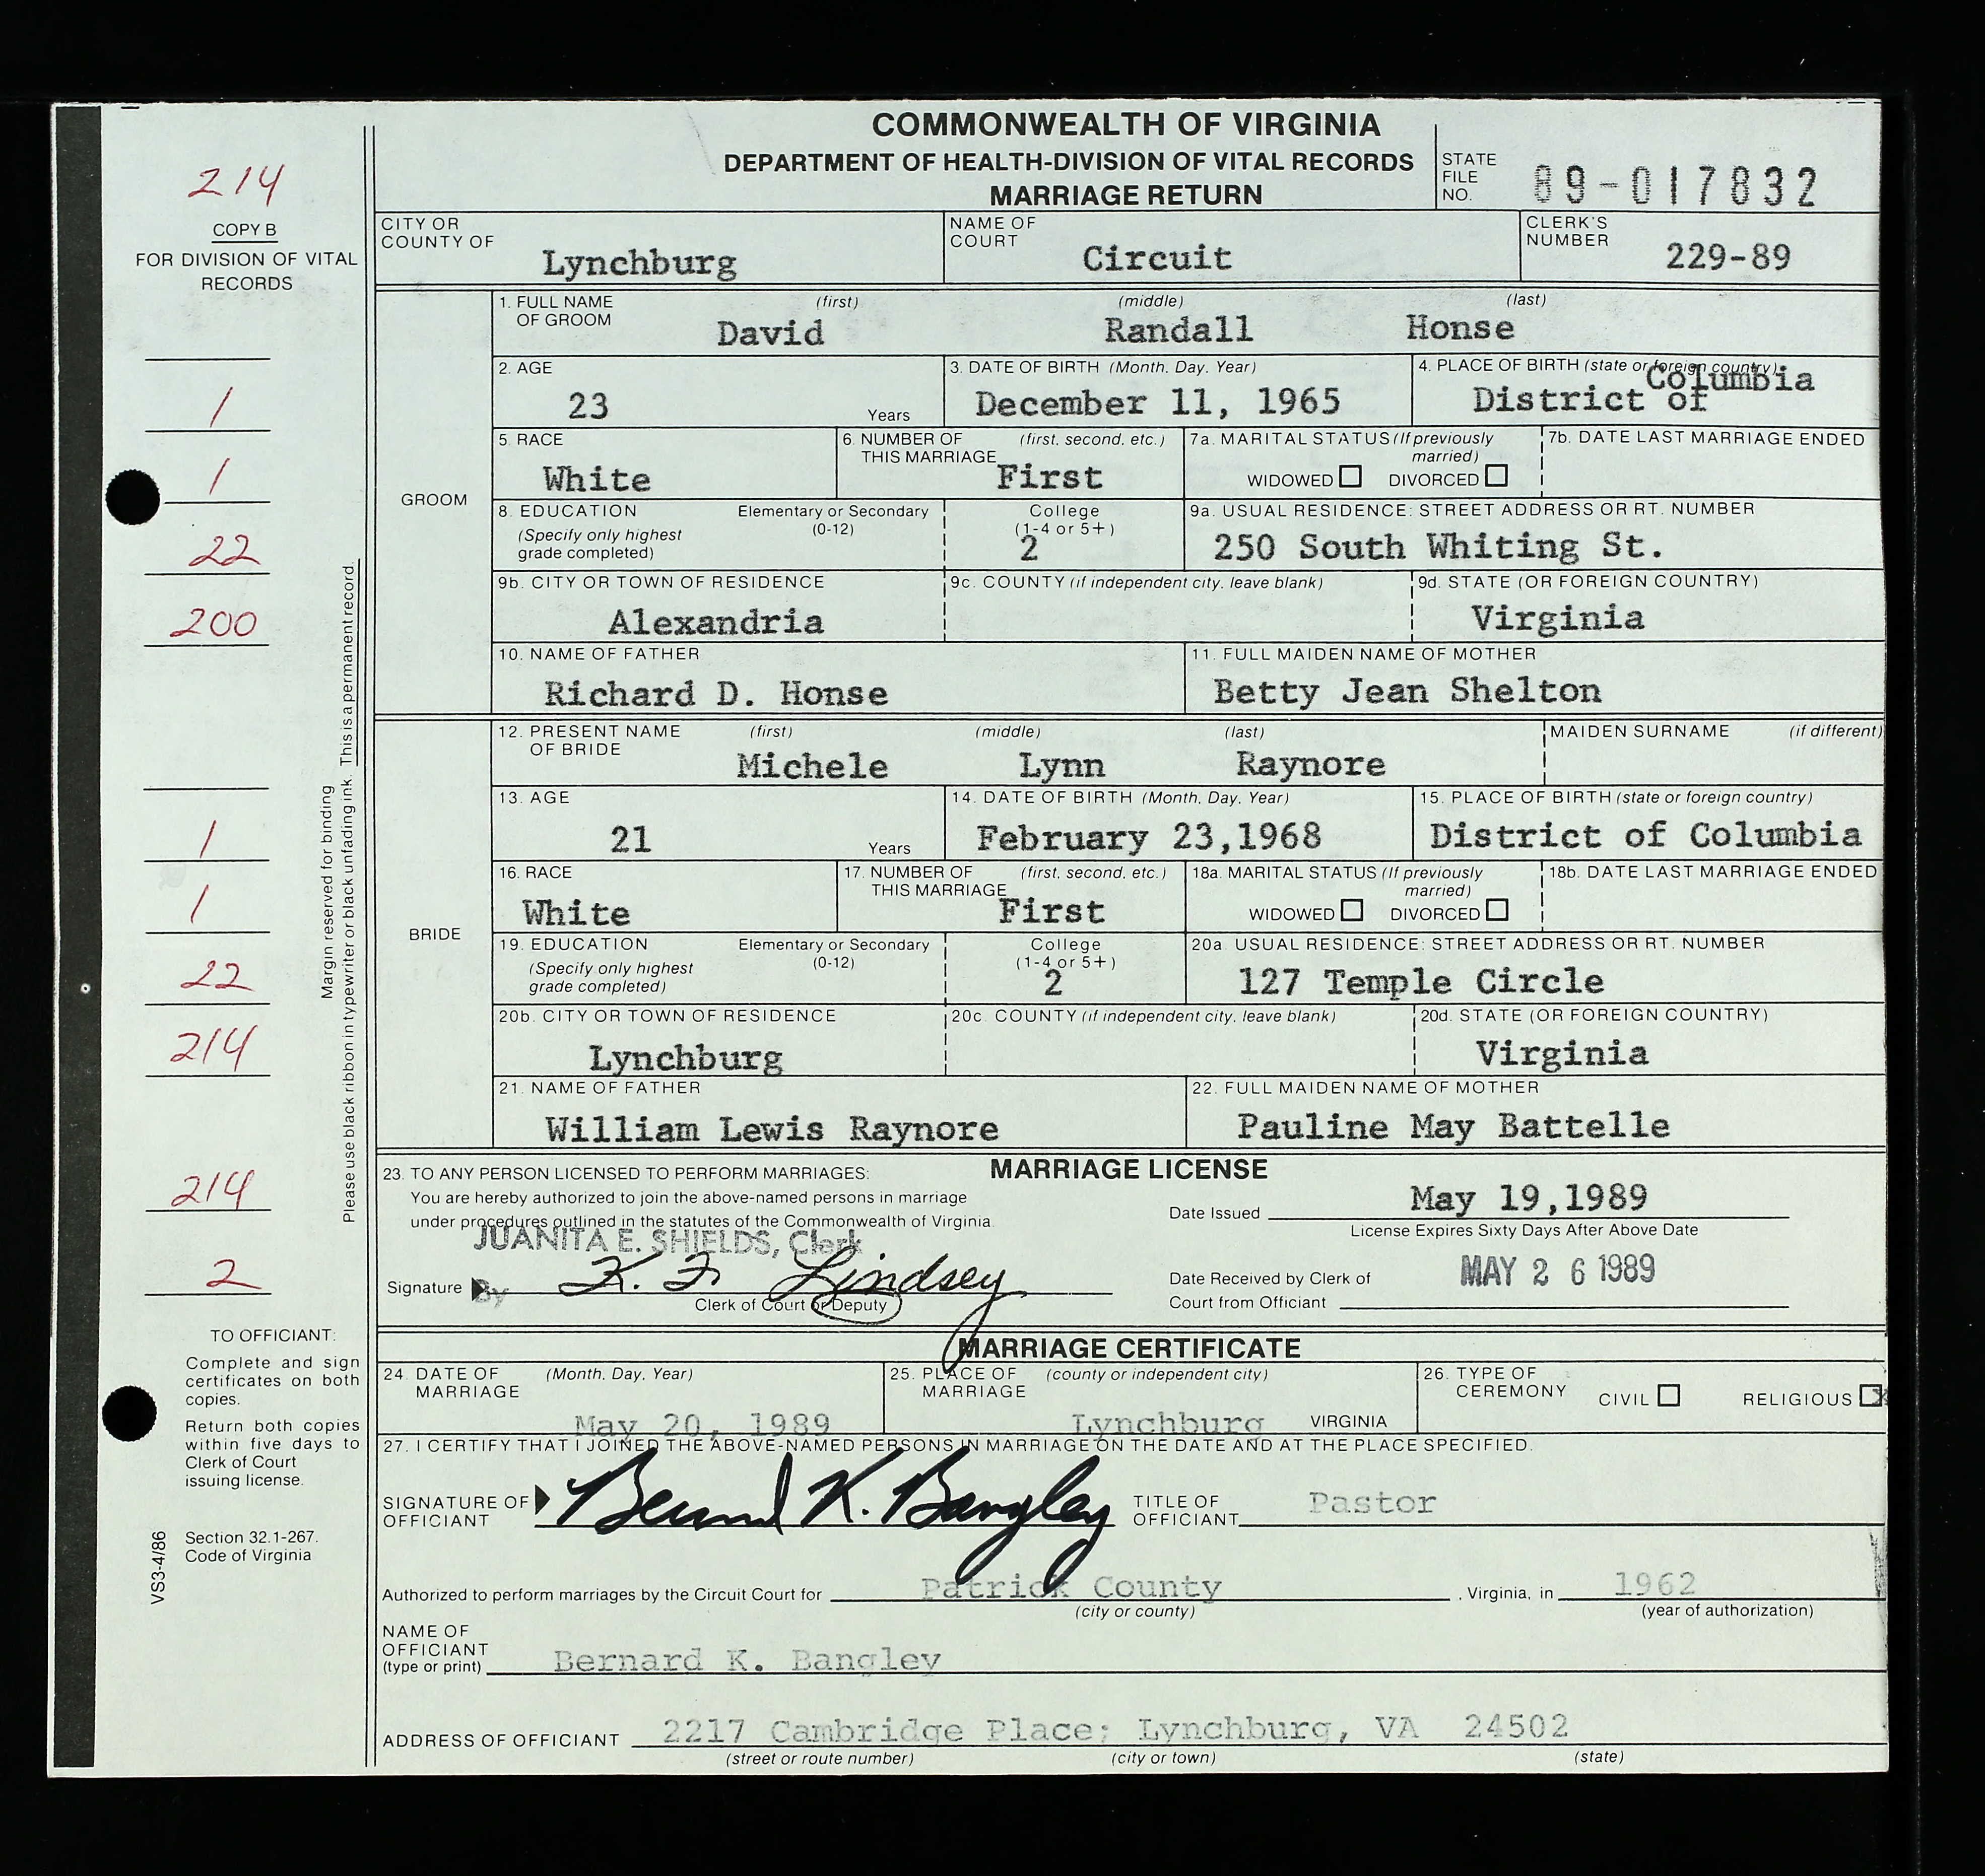 COMMONWEALTH OF VIRGINIA
DEPARTMENT OF HEALTH-DIVISION OF VITAL RECORDS
MARRIAGE RETURN
STATE FILE NO. 89-017832
214
COPY B
FOR DIVISION OF VITAL RECORDS
CITY OR COUNTY OF Lynchburg
NAME OF COURT Circuit
CLERK'S NUMBER 229-89
GROOM
1. FULL NAME OF GROOM (first) David (middle) Randall (last) Honse
2. AGE 23 Years
3. DATE OF BIRTH (Month, Day, Year) December 11, 1965
4. PLACE OF BIRTH (state or foreign country) District of Columbia
5. RACE White
6. NUMBER OF THIS MARRIAGE (first, second, etc.) First
7a. MARITAL STATUS (If previously married) WIDOWED DIVORCED
7b. DATE LAST MARRIAGE ENDED
8. EDUCATION (Specify only highest grade completed) Elementary or Secondary (0-12) College (1-4 or 5+) 2
9a. USUAL RESIDENCE: STREET ADDRESS OR RT. NUMBER 250 South Whiting St.
9b. CITY OR TOWN OF RESIDENCE Alexandria
9c. COUNTY (if independent city, leave blank)
9d. STATE (OR FOREIGN COUNTRY) Virginia
10. NAME OF FATHER Richard D. Honse
11. FULL MAIDEN NAME OF MOTHER Betty Jean Shelton
BRIDE
12. PRESENT NAME OF BRIDE (first) Michele (middle) Lynn (last) Raynore
MAIDEN SURNAME (if different)
13. AGE 21 Years
14. DATE OF BIRTH (Month, Day, Year) February 23,1968
15. PLACE OF BIRTH (state or foreign country) District of Columbia
16. RACE White
17. NUMBER OF THIS MARRIAGE (first, second, etc.) First
18a. MARITAL STATUS (If previously married) WIDOWED DIVORCED
18b. DATE LAST MARRIAGE ENDED
19. EDUCATION (Specify only highest grade completed) Elementary or Secondary (0-12) College (1-4 or 5+) 2
20a. USUAL RESIDENCE: STREET ADDRESS OR RT. NUMBER 127 Temple Circle
20b. CITY OR TOWN OF RESIDENCE Lynchburg
20c. COUNTY (if independent city, leave blank)
20d. STATE (OR FOREIGN COUNTRY) Virginia
21. NAME OF FATHER William Lewis Raynore
22. FULL MAIDEN NAME OF MOTHER Pauline May Battelle
MARRIAGE LICENSE
23. TO ANY PERSON LICENSED TO PERFORM MARRIAGES:
You are hereby authorized to join the above-named persons in marriage
under procedures outlined in the statutes of the Commonwealth of Virginia.
JUANITA E. SHIELDS, Clerk
Signature By K. F. Lindsey
Clerk of Court or Deputy
Date Issued May 19,1989
License Expires Sixty Days After Above Date
Date Received by Clerk of Court from Officiant MAY 26 1989
MARRIAGE CERTIFICATE
24. DATE OF MARRIAGE (Month, Day, Year) May 20, 1989
25. PLACE OF MARRIAGE (county or independent city) Lynchburg VIRGINIA
26. TYPE OF CEREMONY CIVIL RELIGIOUS X
27. I CERTIFY THAT I JOINED THE ABOVE-NAMED PERSONS IN MARRIAGE ON THE DATE AND AT THE PLACE SPECIFIED.
SIGNATURE OF OFFICIANT Bernard K. Bangley
TITLE OF OFFICIANT Pastor
Authorized to perform marriages by the Circuit Court for Patrick County, Virginia, in 1962
(city or county) (year of authorization)
NAME OF OFFICIANT (type or print) Bernard K. Bangley
ADDRESS OF OFFICIANT 2217 Cambridge Place; Lynchburg, VA 24502
(street or route number) (city or town) (state)
1
1
22
200
1
1
22
214
214
2
Margin reserved for binding
Please use black ribbon in typewriter or black unfading ink. This is a permanent record.
TO OFFICIANT:
Complete and sign
certificates on both
copies.
Return both copies
within five days to
Clerk of Court
issuing license.
Section 32.1-267.
Code of Virginia
VS3-4/86